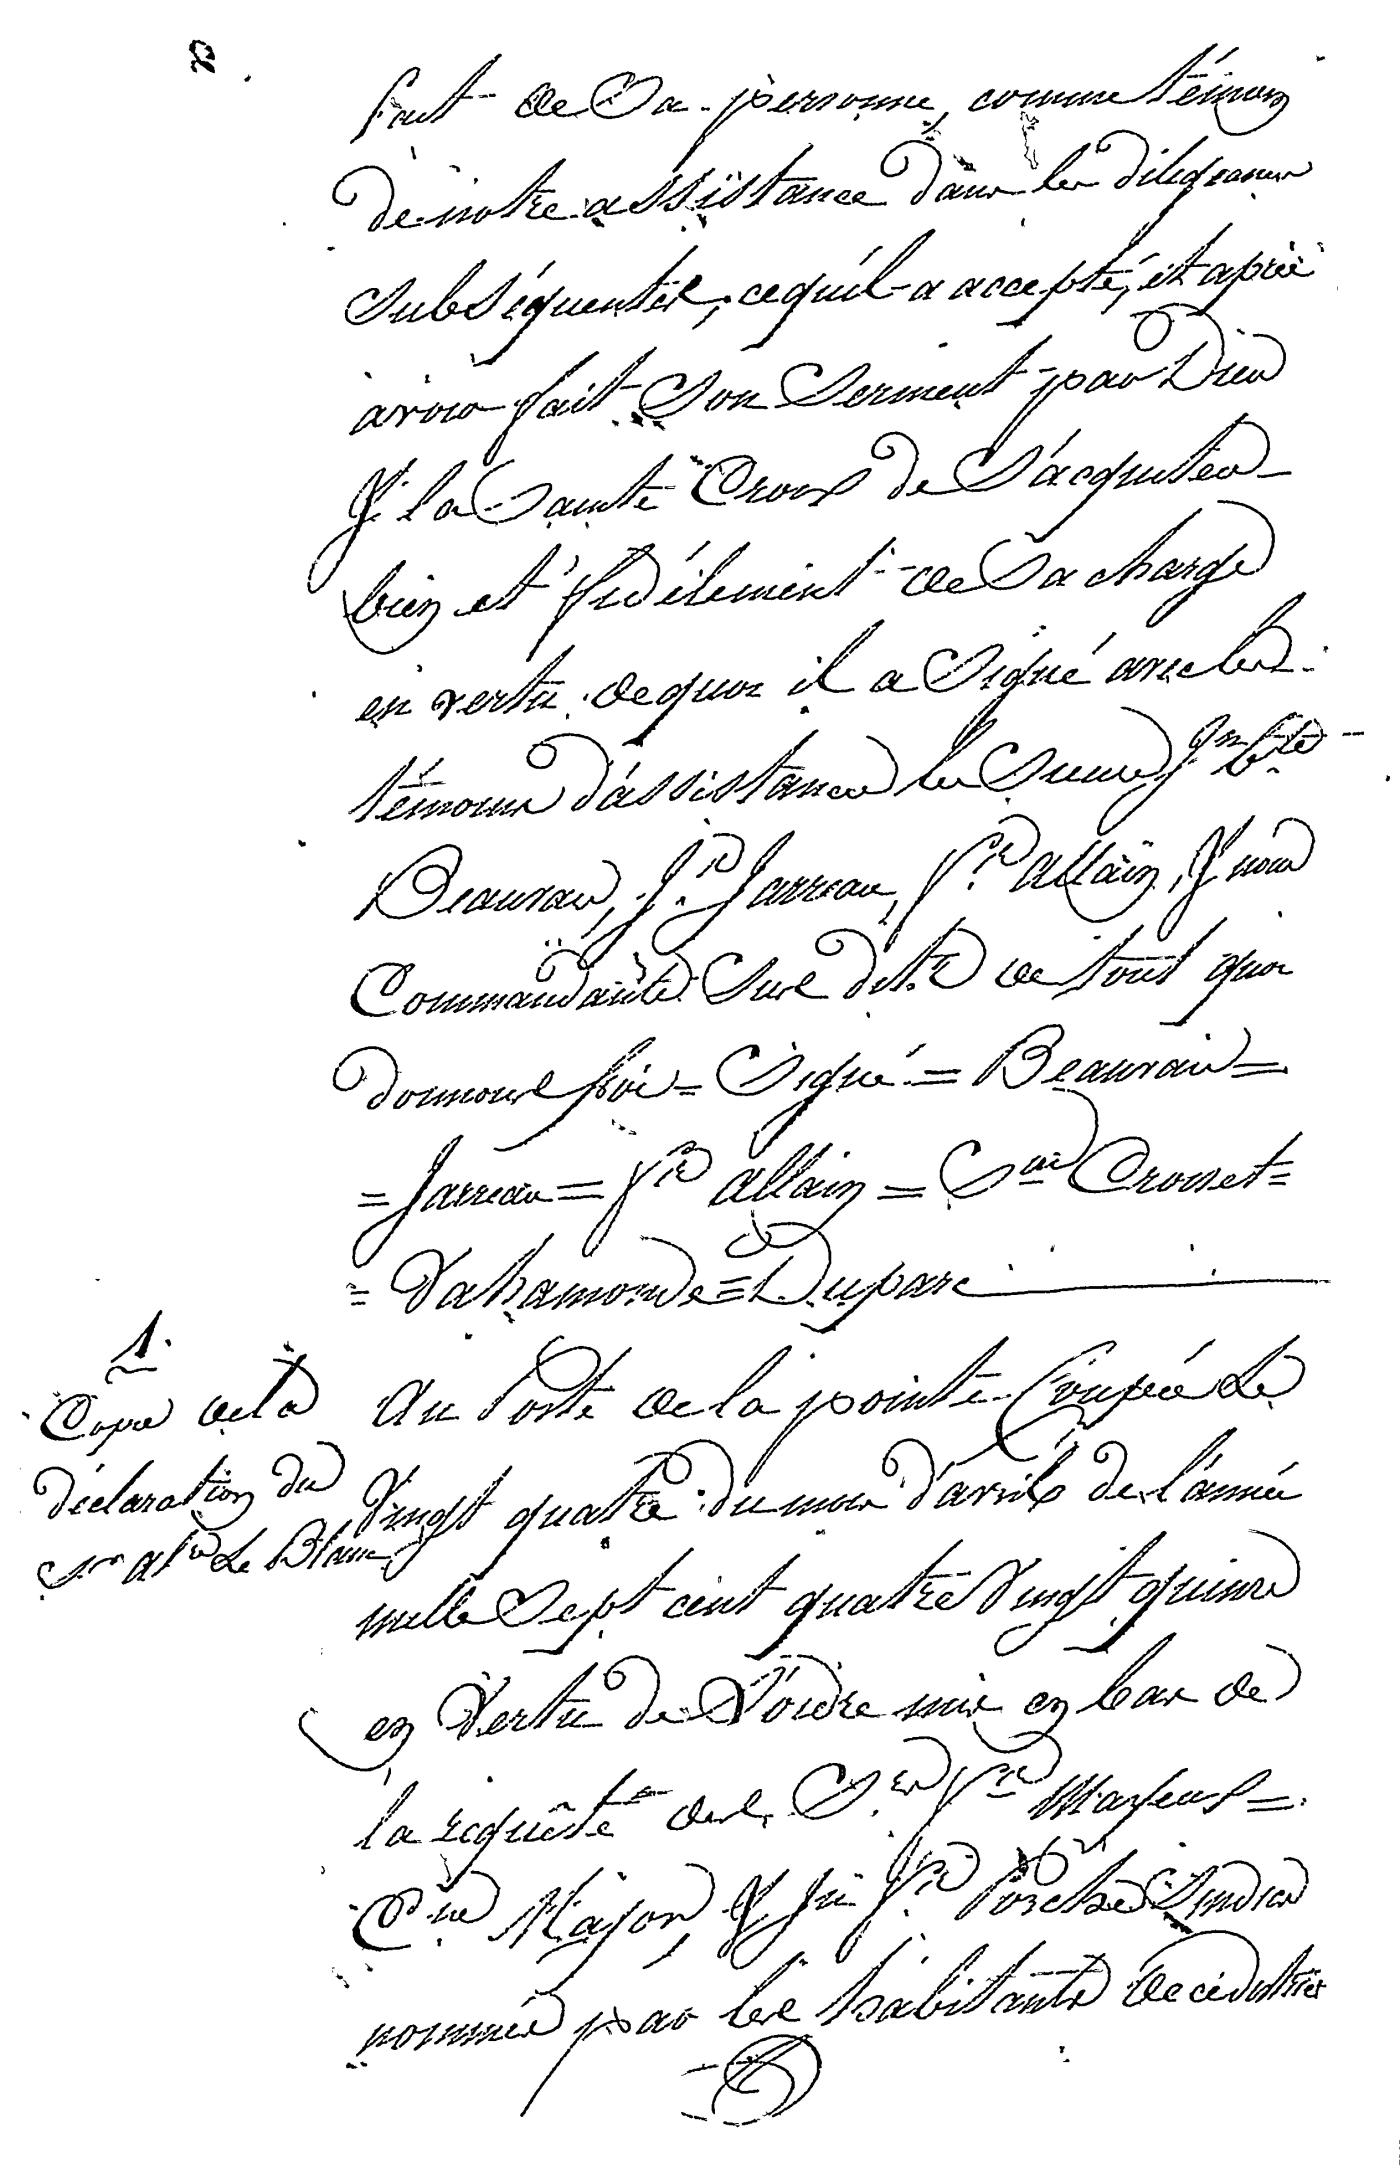 fait de Sa personne, comme témoin
de notre assistance dans les diligeances
subséquentes, cequ'il a accepté, et aprés
avoir fait Son Serment par Dieu
& la Sainte Croix de S'acquiter
bien et fidélement de Sa charge
en vertu dequoi il a Signé avec les
témoins d'assistance les Sieurs Jn Bte
Beauvais, Jh Jarreau, Pre Allain, & nous
Commandant Sus dit. de tout quoi
donnons foi = Signé = Beauvais =
= Jarreau = Pre Allain = Son Croiset =
= Vahamonde = Duparc
1.
Copie de la
déclaration du
Sr Alre Le Blanc
Au Poste de la pointe Coupée Le
Vingt quatre du mois d'avril de l'année
mille Sept cent quatre Vingt quinze
en Vertu de L'ordre mis en bas de
la requête des Srs Pre Mayeux =
Cne Major, & Jn Pre Porche Sindics
nommés par les habitants de ce district